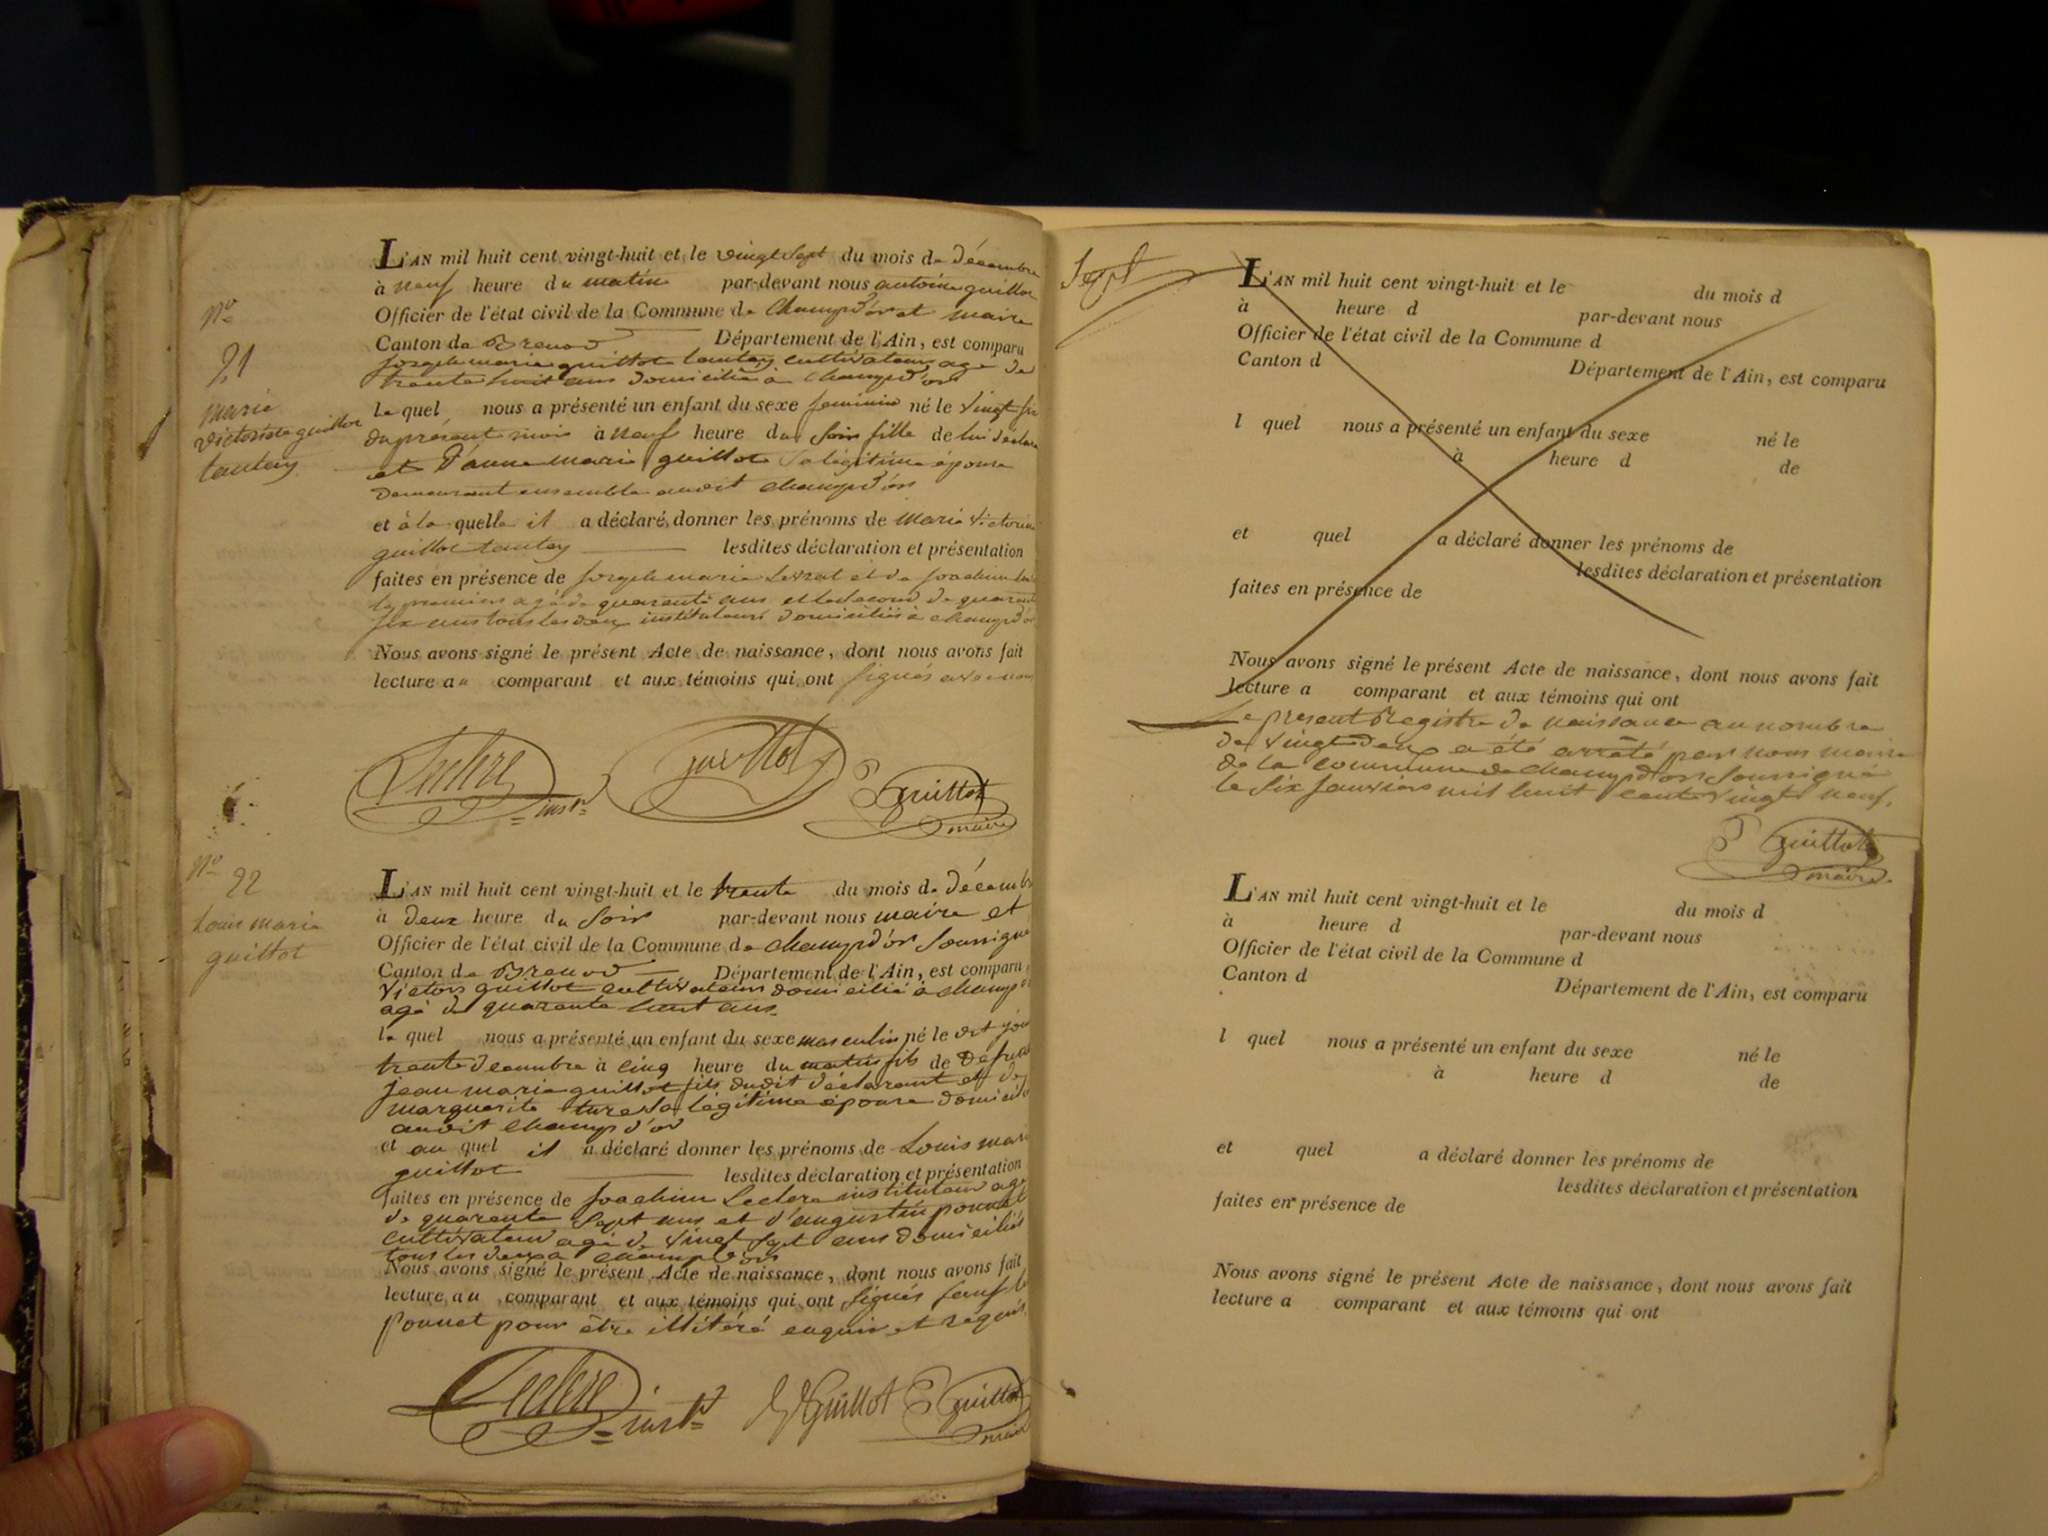 N°
21
marie
victorine guillot
tantay
L'AN mil huit cent vingt-huit et le vingt sept du mois de décembre
à neuf heure du matin par-devant nous antoine guillot
Officier de l'état civil de la Commune de Champd'or et maire
Canton de Brenod Département de l'Ain, est comparu
joseph marie guillot tantay cultivateur age de
trente huit ans domicilié à Champd'or
le quel nous a présenté un enfant du sexe feminin né le vingt six
du présent mois à neuf heure du soir fille de lui déclarant
et d'anne marie guillot sa légitime épouse
demeurant ensemble audit Champd'or
et à la quelle il a déclaré donner les prénoms de marie victorine
guillot tantay lesdites déclaration et présentation
faites en présence de joseph marie et de joachim
le premier agé de quarante ans et le second de quarante
six ans tous les deux instituteurs domiciliés à Champd'or
Nous avons signé le présent Acte de naissance, dont nous avons fait
lecture au comparant et aux témoins qui ont signés avec nous
Leclerc instr Guillot Guillot
maire
N° 22
Louis marie
guillot
L'AN mil huit cent vingt-huit et le trente du mois de décembre
à deux heure du soir par-devant nous maire et
Officier de l'état civil de la Commune de Champd'or soussigné
Canton de Brenod Département de l'Ain, est comparu
victor guillot cultivateur domicilié à Champd'or
agé de quarante huit ans
le quel nous a présenté un enfant du sexe masculin né le dit jour
trente décembre à cinq heure du matin fils de defunt
jean marie guillot fils dudit déclarant et de
marguerite sa légitime épouse domicilié
audit Champ d'or
et au quel il a déclaré donner les prénoms de Louis marie
guillot lesdites déclaration et présentation
faites en présence de joachim Leclerc instituteur agé
de quarante sept ans et d'augustin ponnet
cultivateur agé de vingt sept ans domiciliés
tous les deux à Champd'or
Nous avons signé le présent Acte de naissance, dont nous avons fait
lecture au comparant et aux témoins qui ont signés sauf le
ponnet pour être illitéré enquis et requis
Leclerc instr Guillot Guillot
maire
Sept
L'AN mil huit cent vingt-huit et le du mois d
à heure d par-devant nous
Officier de l'état civil de la Commune d
Canton d Département de l'Ain, est comparu
l quel nous a présenté un enfant du sexe né le
à heure d de
et quel a déclaré donner les prénoms de
lesdites déclaration et présentation
faites en présence de
Nous avons signé le présent Acte de naissance, dont nous avons fait
lecture a comparant et aux témoins qui ont
Le présent Registre de naissance au nombre
de vingt deux a été arrêté par nous maire
de la commune de Champd'or soussigné
le six janvier mil huit cent vingt neuf.
Guillot
maire
L'AN mil huit cent vingt-huit et le du mois d
à heure d par-devant nous
Officier de l'état civil de la Commune d
Canton d Département de l'Ain, est comparu
l quel nous a présenté un enfant du sexe né le
à heure d de
et quel a déclaré donner les prénoms de
lesdites déclaration et présentation
faites en présence de
Nous avons signé le présent Acte de naissance, dont nous avons fait
lecture a comparant et aux témoins qui ont